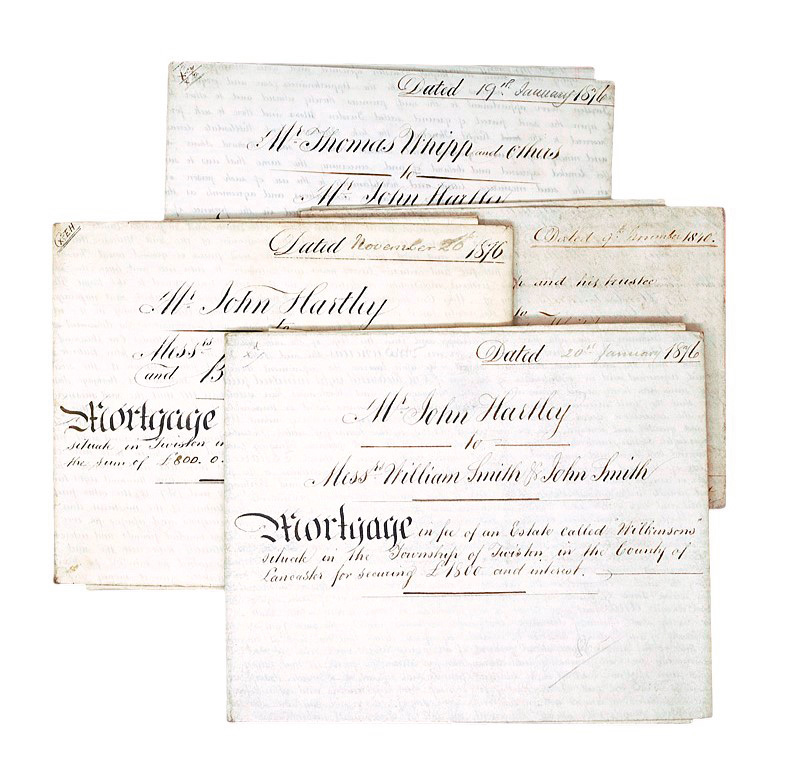 Dated 19th January 1876
Mr Thomas Whipp and others
to
Mr John Hartley
Dated 1840.
and his trustee
to
K.E.H
Dated November 20th 1876
Mr John Hartley
to
Messrs
and B
Mortgage
situate in Twiston in
the sum of £800. 0.
Dated 20th January 1876
Mr John Hartley
to
Messrs William Smith & John Smith
Mortgage in fee of an Estate called "Wilkinsons"
situate in the Township of Twiston in the County of
Lancaster for securing £1800 and interest.